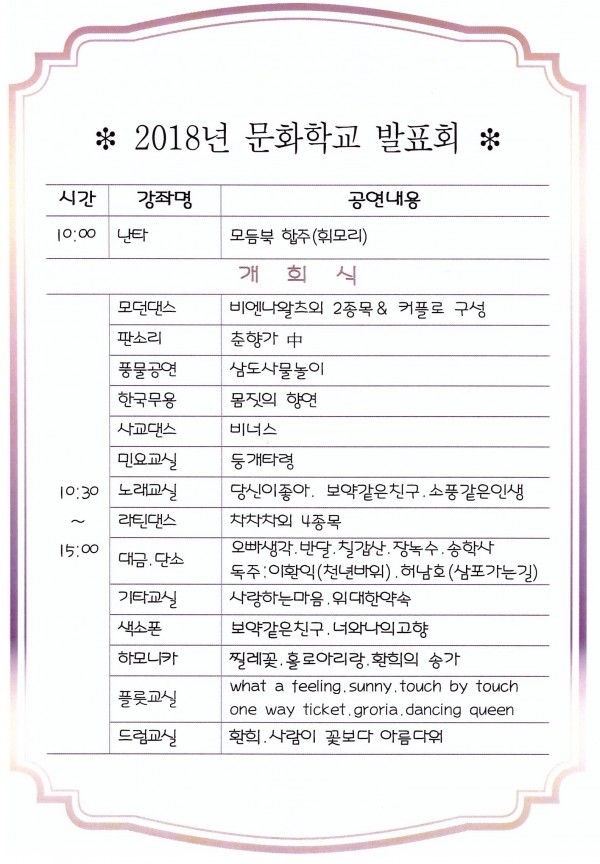 ✻ 2018년 문화학교 발표회 ✻
시간 강좌명 공연내용
10:00 난타 모듬북 합주(휘모리)
개 회 식
모던댄스 비엔나왈츠외 2종목 & 커플로 구성
판소리 춘향가 中
풍물공연 삼도사물놀이
한국무용 몸짓의 향연
사교댄스 비너스
민요교실 둥개타령
10:30 노래교실 당신이좋아. 보약같은친구.소풍같은인생
~ 라틴댄스 차차차외 4종목
15:00 대금.단소 오빠생각.반달.칠갑산.장녹수.송학사
독주:이환익(천년바위).허남호(삼포가는길)
기타교실 사랑하는마음.위대한약속
색소폰 보약같은친구.너와나의고향
하모니카 찔레꽃.홀로아리랑.환희의 송가
플룻교실 what a feeling.sunny.touch by touch
one way ticket.groria.dancing queen
드럼교실 환희.사람이 꽃보다 아름다워